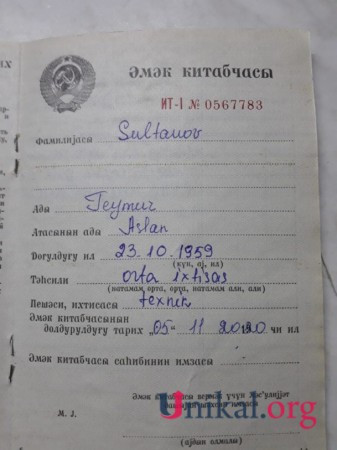 Әмәк китабчасы
ИТ-I № 0567783
Фамилијасы Sultanov
Ады Teymur
Атасынын ады Aslan
Доғулдуғу ил 23.10.1959
(күн, ај, ил)
Тәһсили orta ixtisas
(натамам орта, орта, натамам али, али)
Пешәси, ихтисасы texnik
Әмәк китабчасынын
долдурулдуғу тарих "05" 11 2020 чи ил
Әмәк китабчасы саһибинин имзасы
Әмәк китабчасы вермәк үчүн
М. Ј.
Unikal.org
(ајдын олмалы)